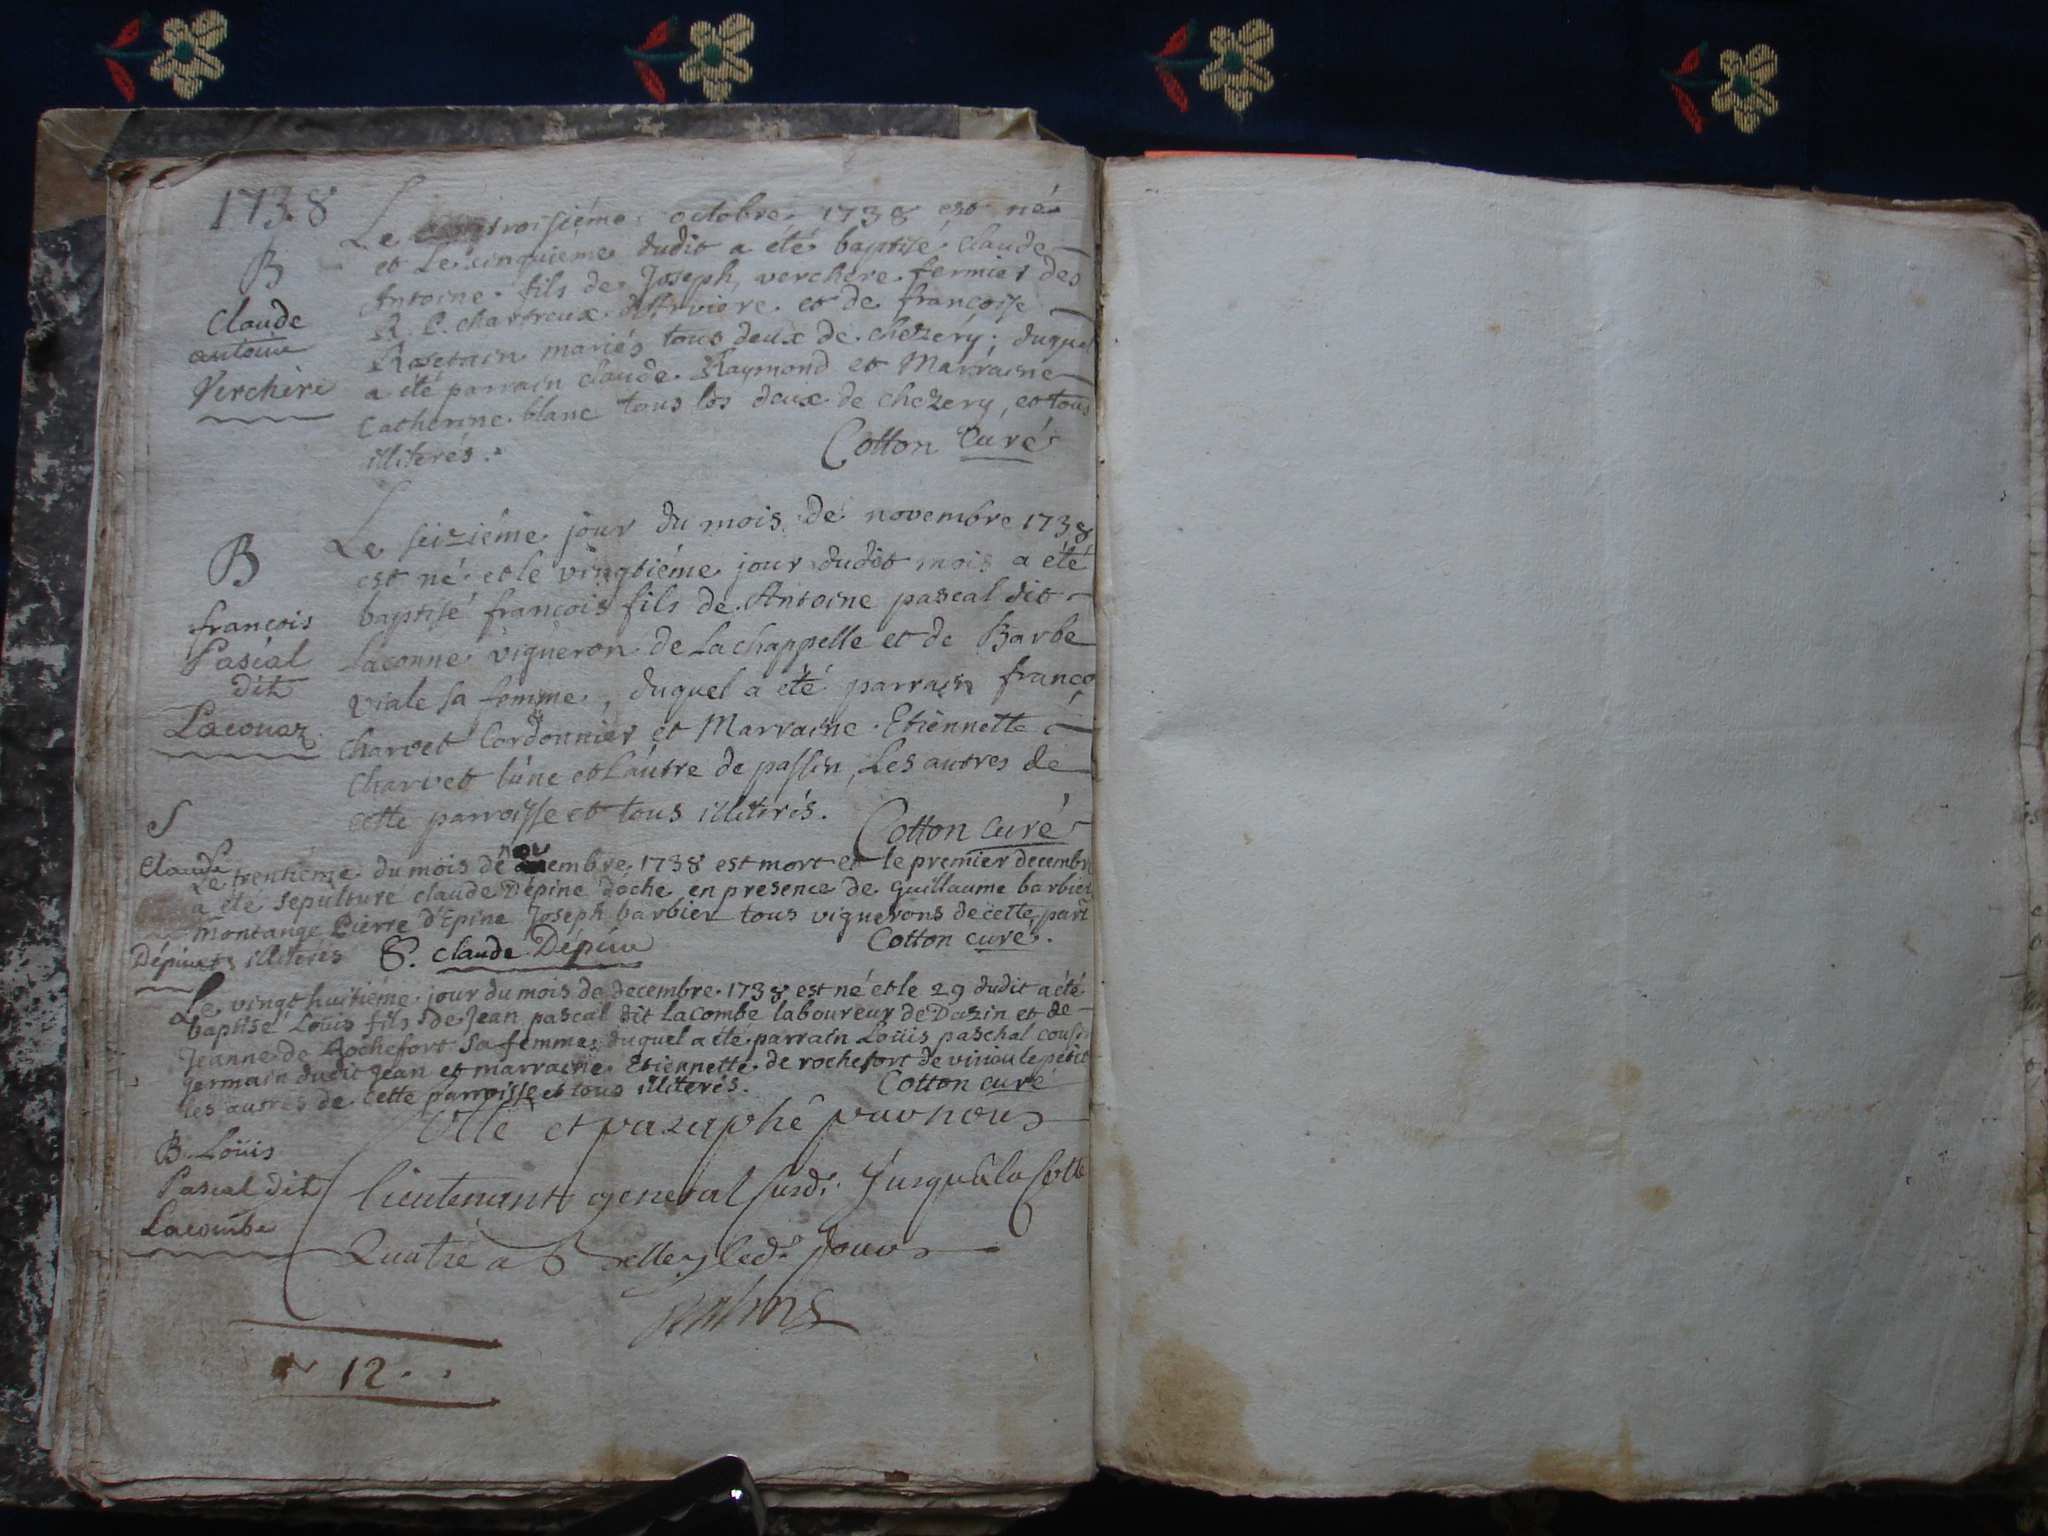 1738
B
Claude
antoine
Verchere
Le troisiéme octobre 1738 est né
et Le cinquiéme dudit a été baptisé Claude
Antoine fils de Joseph verchere fermier des
R. P. chartreux d'Arviere et de françoise
mariés tous deux de chezery; duquel
a été parrain claude Raymond et Marraine
Catherine blanc tous les deux de chezery, et tous
illiterés.
Cotton Curé
B
françois
Pascal
dit
Laconaz
Le seiziéme jour du mois de novembre 1738
est né et le vingtiéme jour dudit mois a été
baptisé françois fils de Antoine pascal dit
Laconne vigneron de Lachappelle et de Barbe
viale sa femme, duquel a été parrain franço
charvet Cordonnier et Marraine Etiennette
Charvet lúne et Láutre de passin, Les autres de
cette parroisse et tous illiterés.
Cotton Curé
S
Claude
Dépine
Le trentiéme du mois de novembre 1738 est mort et le premier decembre
a été sepulturé claude Dépine doche en presence de guillaume barbier
montange Pierre d'Epine Joseph barbier tous vignerons de cette parr
illiterés
S. claude Dépine
Cotton curé.
Le vingt huitiéme jour du mois de decembre 1738 est né et le 29 dudit a été
baptisé Loüis fils de Jean pascal dit lacombe laboureur de Dazin et de
Jeanne de Rochefort sa femme duquel a été parrain Loüis paschal cousin
germain dudit jean et marraine Etiennette de rochefort de virieu le petit
les autres de cette parroisse et tous illiterés.
Cotton curé
B Loüis
Pascal dit
Lacombe
Cotté et paraphé par nous
lieutenant general susd. Jusqu'à la Cotte
Quatre a Belley led. Jour
12